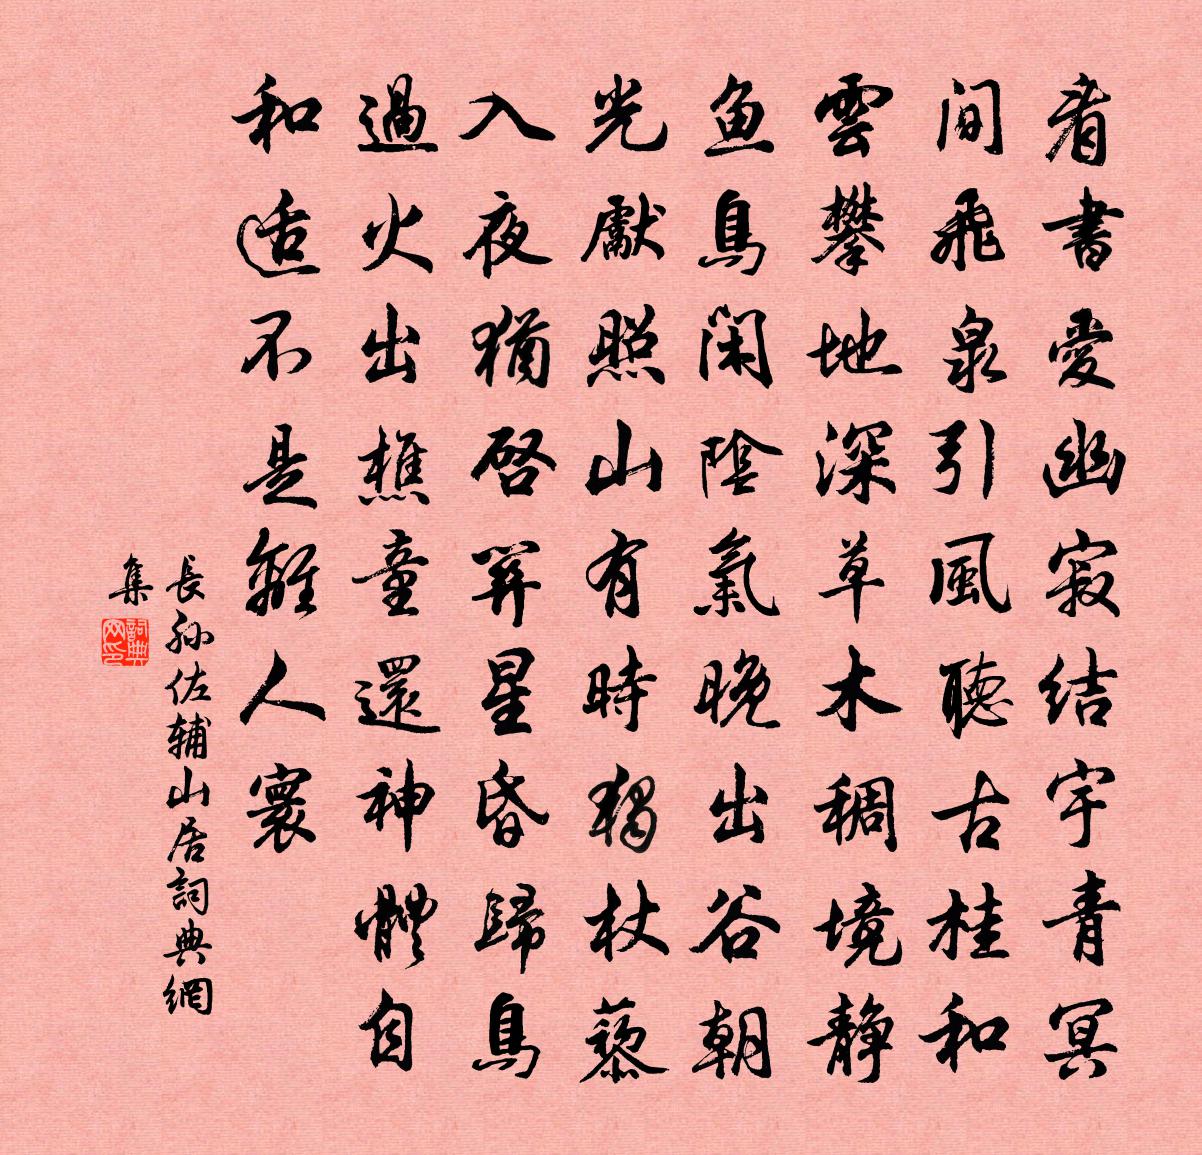 看書愛幽寂结宇青冥
间飛泉引風聽古桂和
雲攀地深草木稠境静
鱼鳥闲陰氣晚出谷朝
光獻照山有時獨杖藜
入夜猶啓關星昏歸鳥
過火出樵童還神體自
和适不是離人寰
長孫佐辅山居詞典網
集
詞典网印